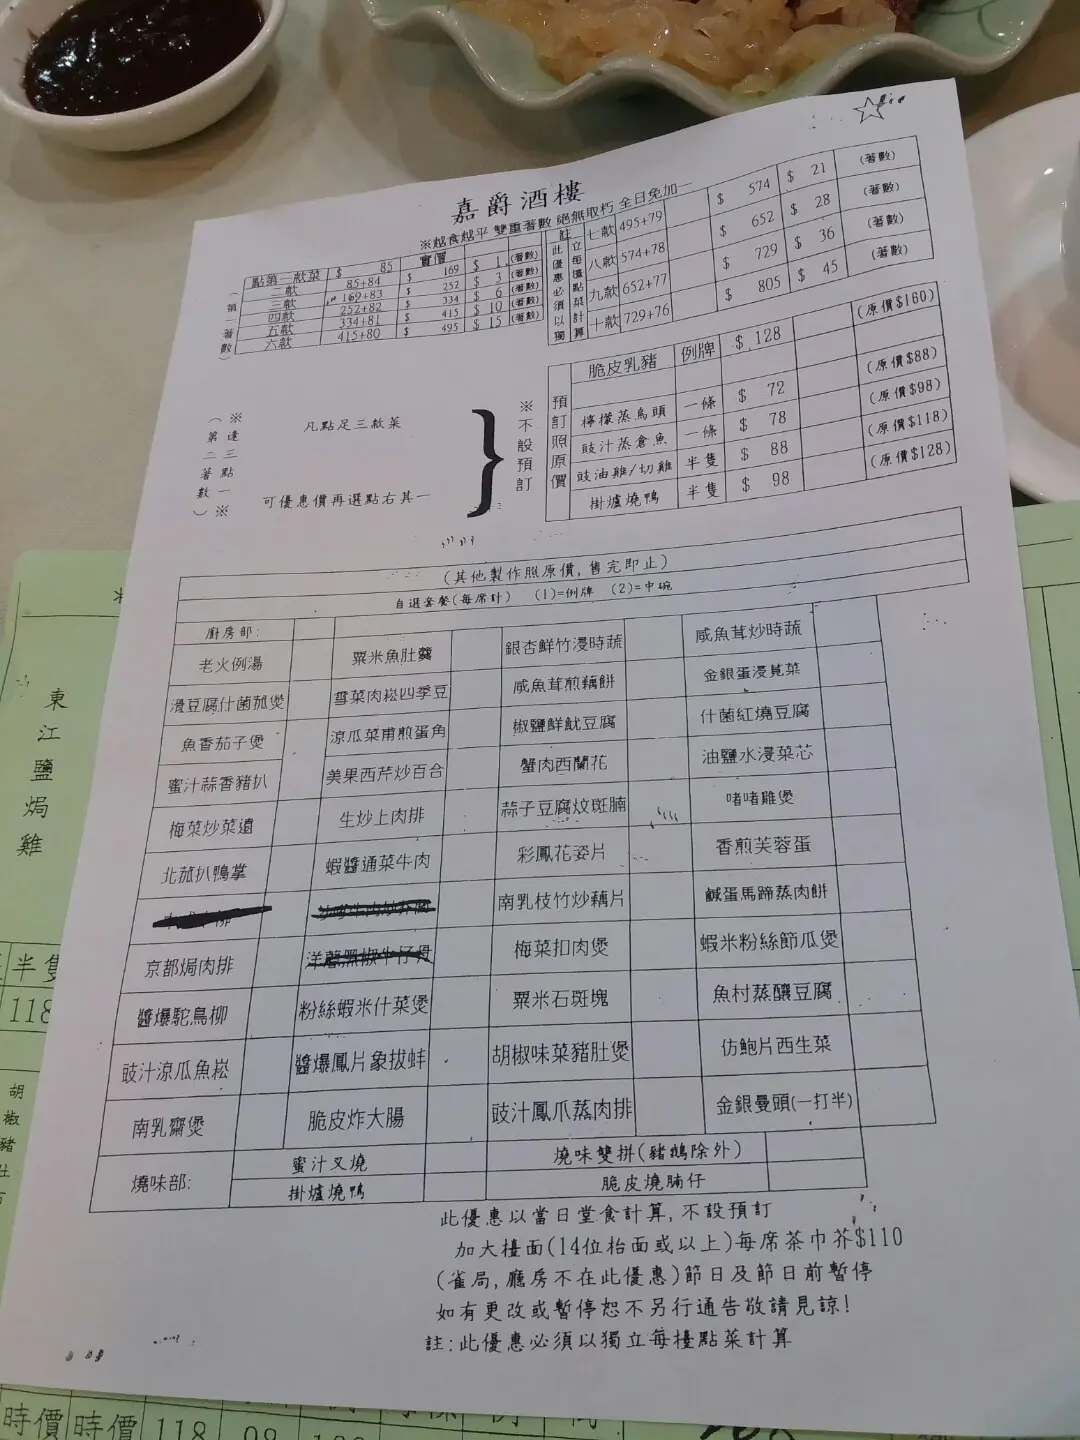 嘉爵酒樓
※越食越平 雙重著數 絕無取巧 全日免加一
(第一著數)
實價
點第一款菜 $ 85
二款 85+84 $ 169 $ 1 (著數)
三款 169+83 $ 252 $ 3 (著數)
四款 252+82 $ 334 $ 6 (著數)
五款 334+81 $ 415 $ 10 (著數)
六款 415+80 $ 495 $ 15 (著數)
註 此優惠必須以獨立每檯點菜計算
七款 495+79 $ 574 $ 21 (著數)
八款 574+78 $ 652 $ 28 (著數)
九款 652+77 $ 729 $ 36 (著數)
十款 729+76 $ 805 $ 45 (著數)
(第二著數)
※逢三點一※
凡點足三款菜
可優惠價再選點右其一
}
※不設預訂
預訂照原價
脆皮乳豬 例牌 $ 128 (原價$160)
檸檬蒸烏頭 一條 $ 72 (原價$88)
豉汁蒸倉魚 一條 $ 78 (原價$98)
豉油雞/切雞 半隻 $ 88 (原價$118)
掛爐燒鴨 半隻 $ 98 (原價$128)
(其他製作照原價, 售完即止)
自選套餐(每席計) (1)=例牌 (2)=中碗
廚房部:
老火例湯 粟米魚肚羹 銀杏鮮竹浸時蔬 咸魚茸炒時蔬
滑豆腐什菌菰煲 雪菜肉崧四季豆 咸魚茸煎藕餅 金銀蛋浸莧菜
魚香茄子煲 涼瓜菜甫煎蛋角 椒鹽鮮魷豆腐 什菌紅燒豆腐
蜜汁蒜香豬扒 美果西芹炒百合 蟹肉西蘭花 油鹽水浸菜芯
梅菜炒菜遠 生炒上肉排 蒜子豆腐炆斑腩 啫啫雞煲
北菰扒鴨掌 蝦醬通菜牛肉 彩鳳花姿片 香煎芙蓉蛋
南乳枝竹炒藕片 鹹蛋馬蹄蒸肉餅
京都焗肉排 洋蔥黑椒牛仔骨 梅菜扣肉煲 蝦米粉絲節瓜煲
醬爆駝鳥柳 粉絲蝦米什菜煲 粟米石斑塊 魚村蒸釀豆腐
豉汁涼瓜魚崧 醬爆鳳片象拔蚌 胡椒味菜豬肚煲 仿鮑片西生菜
南乳齋煲 脆皮炸大腸 豉汁鳳爪蒸肉排 金銀曼頭(一打半)
燒味部: 蜜汁叉燒 燒味雙拼(豬鵝除外)
掛爐燒鴨 脆皮燒腩仔
此優惠以當日堂食計算, 不設預訂
加大檯面(14位枱面或以上)每席茶巾芥$110
(雀局, 廳房不在此優惠)節日及節日前暫停
如有更改或暫停恕不另行通告敬請見諒!
註:此優惠必須以獨立每檯點菜計算
東江鹽焗雞
半隻
118
胡椒豬肚
時價 時價 118 98